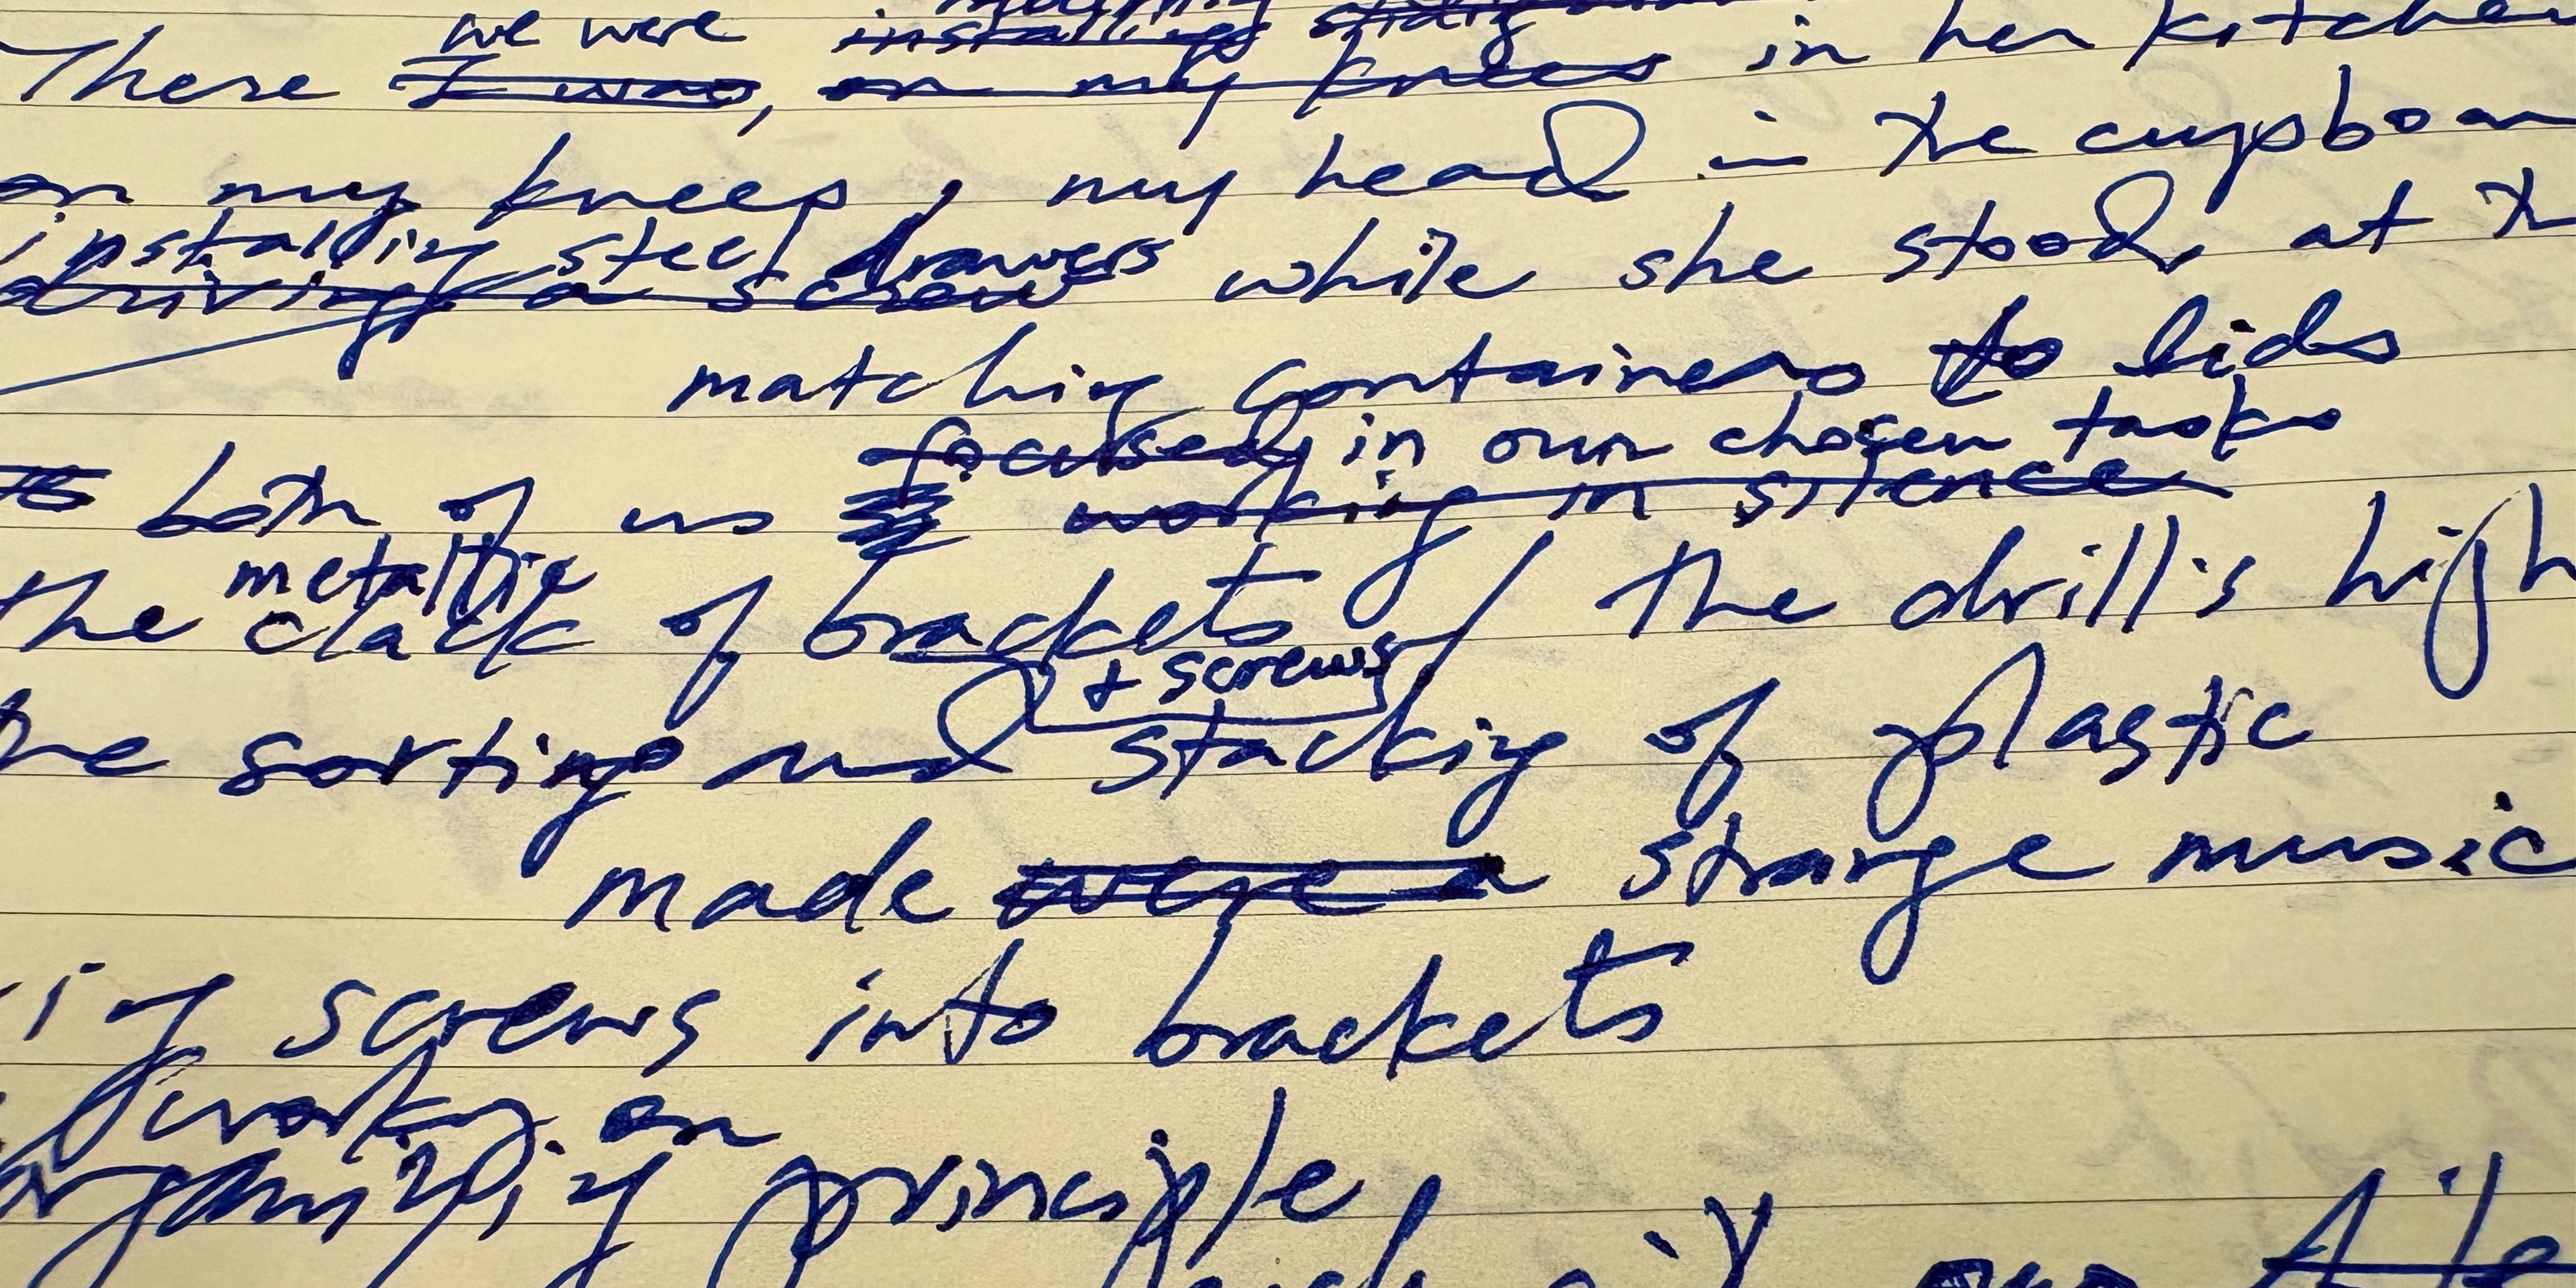 we were installing
There I was, on my knees in her kitchen
on my knees, my head in the cupboar
installing steel drawers
driving a screw while she stood, at th
matching containers to lids
focused in our chosen tasks
both of us working in silence
metallic
the clack of brackets / the drill's high
+ screws
sorting and stacking of plastic
made were a strange music
screws into brackets
working on
organizing principle